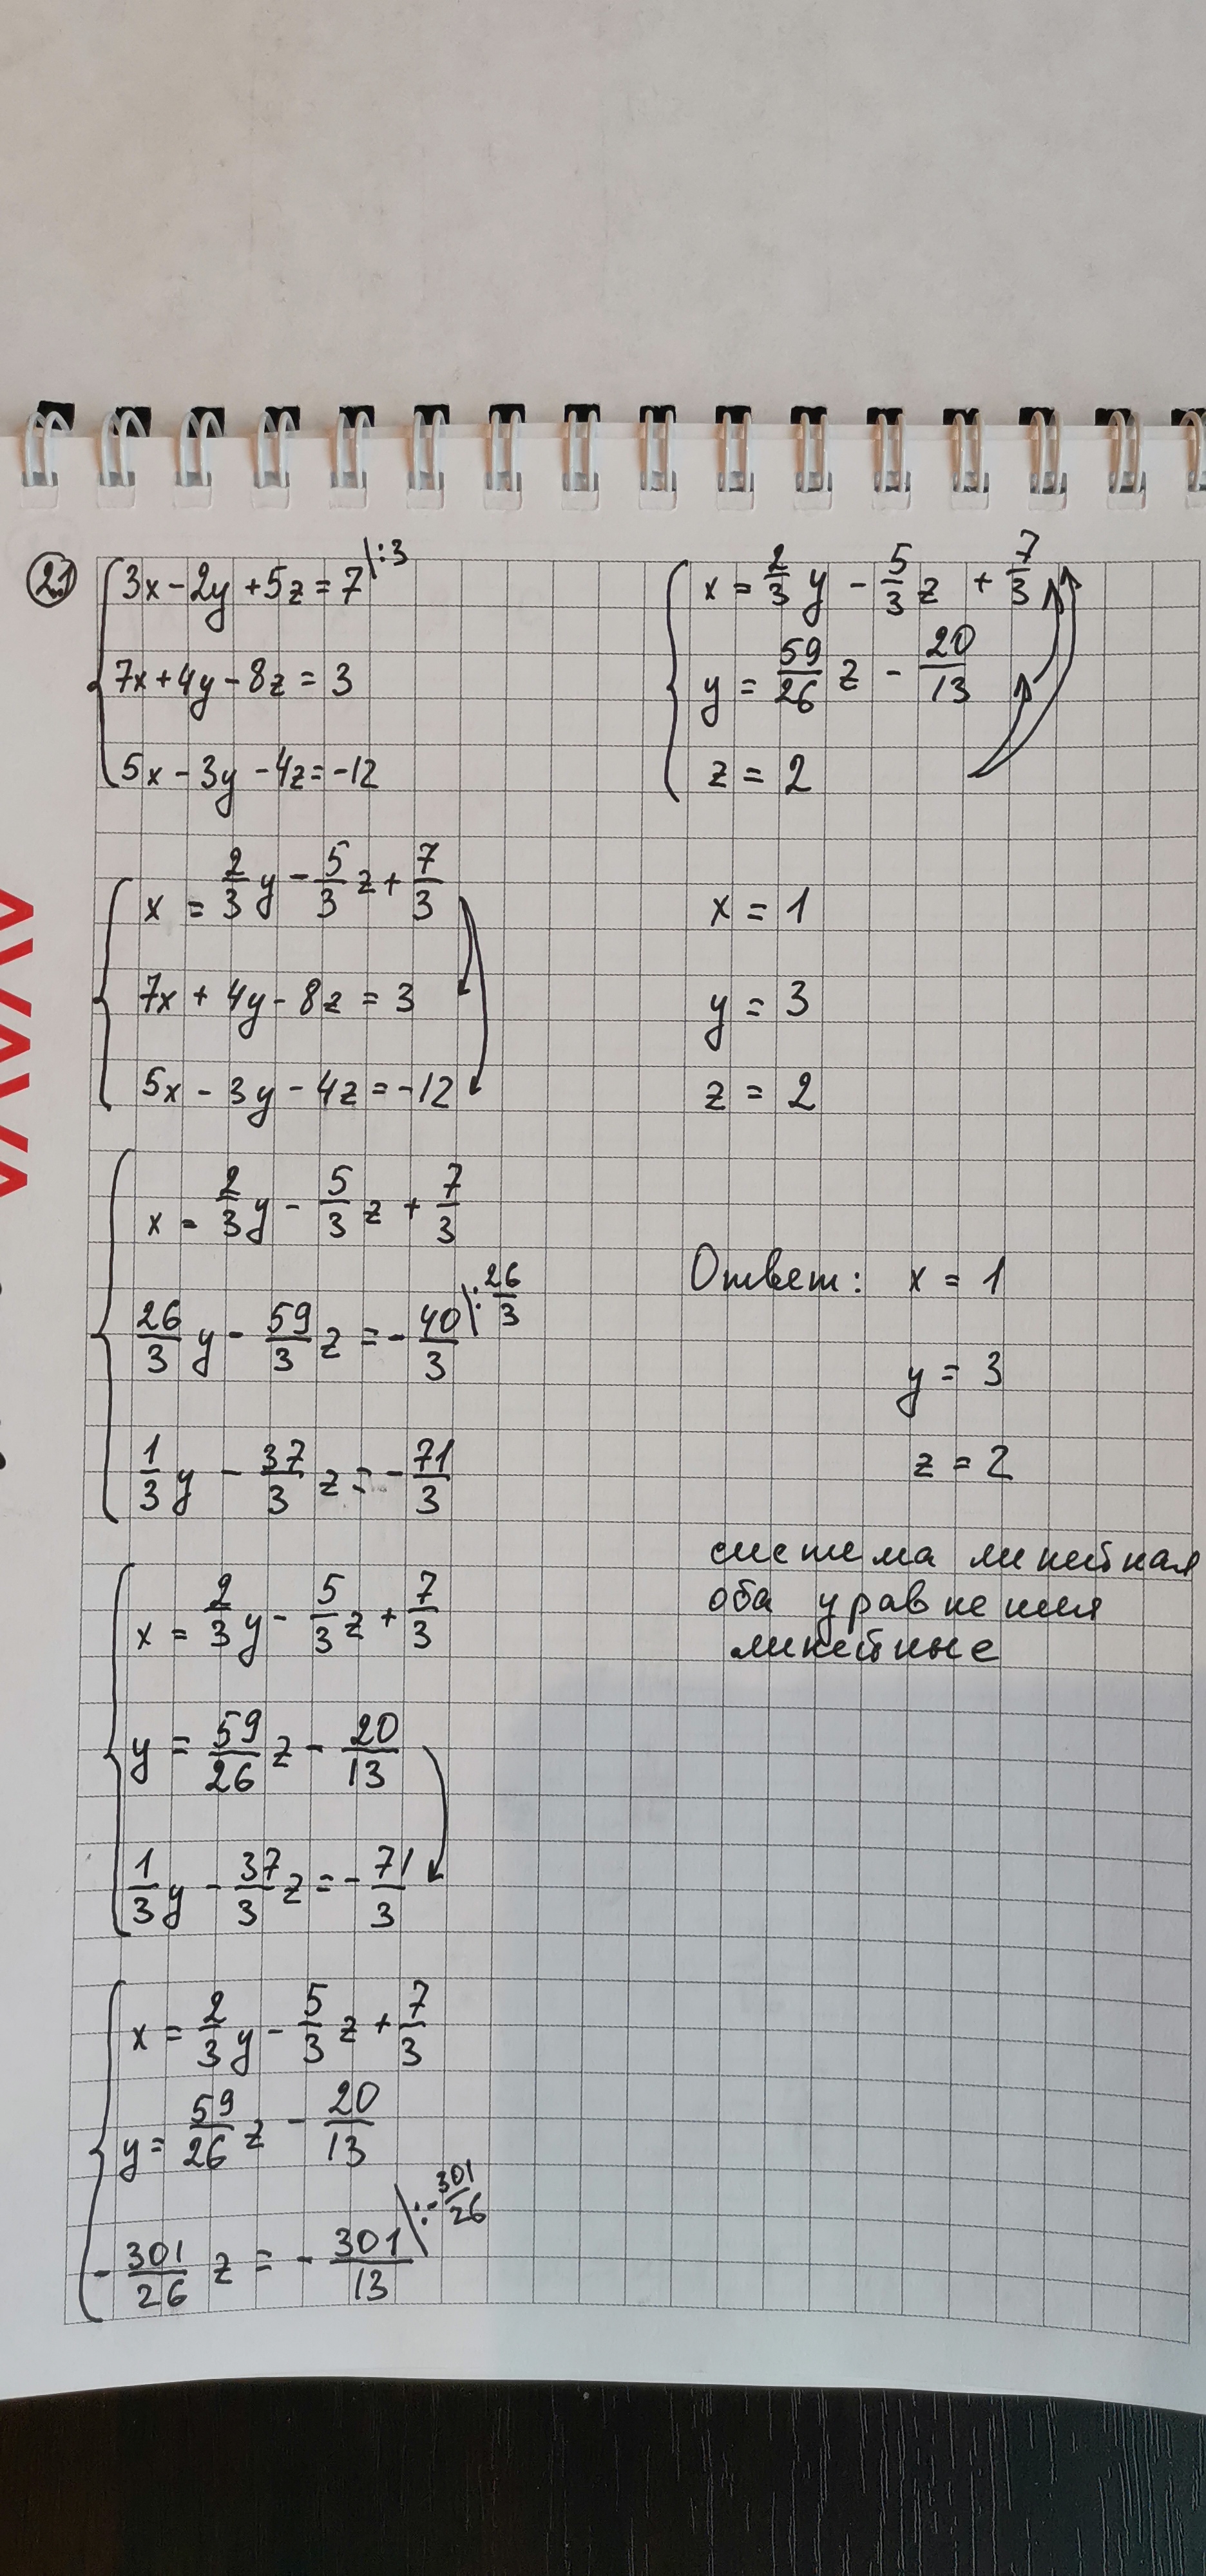 2.1
3x - 2y + 5z = 7 \ :3
7x + 4y - 8z = 3
5x - 3y - 4z = -12
x = 2/3 y - 5/3 z + 7/3
7x + 4y - 8z = 3
5x - 3y - 4z = -12
x = 2/3 y - 5/3 z + 7/3
26/3 y - 59/3 z = - 40/3 \ : 26/3
1/3 y - 37/3 z = - 71/3
x = 2/3 y - 5/3 z + 7/3
y = 59/26 z - 20/13
1/3 y - 37/3 z = - 71/3
x = 2/3 y - 5/3 z + 7/3
y = 59/26 z - 20/13
- 301/26 z = - 301/13 \ : - 301/26
x = 2/3 y - 5/3 z + 7/3
y = 59/26 z - 20/13
z = 2
x = 1
y = 3
z = 2
Ответ: x = 1
y = 3
z = 2
система линейная
оба уравнения
линейные